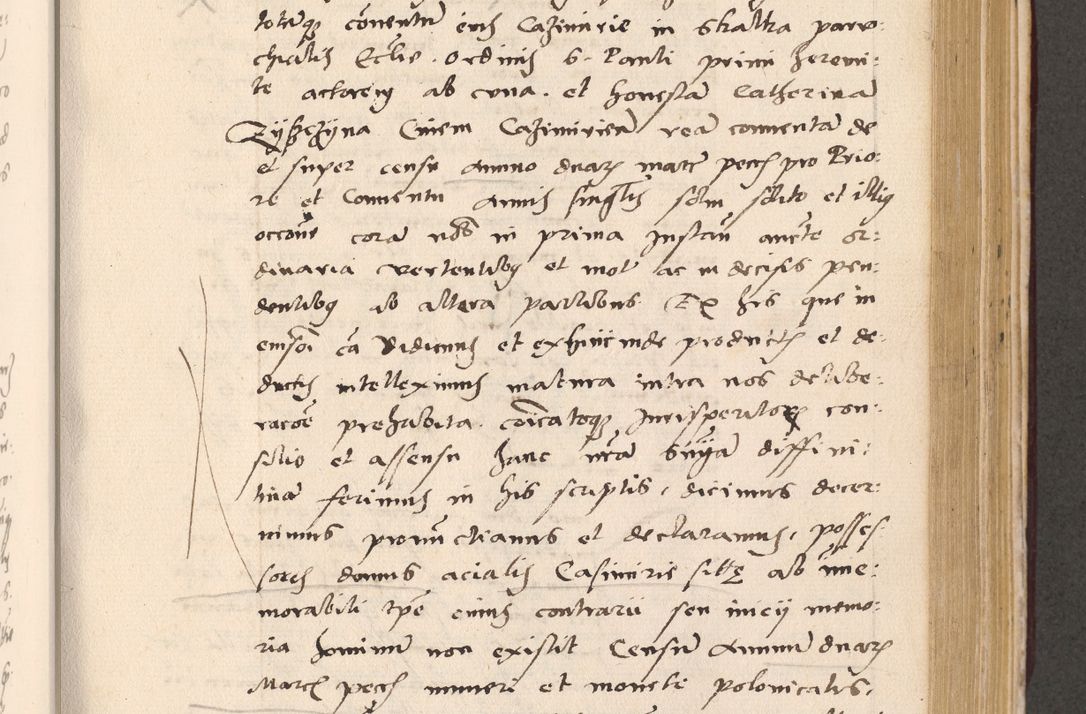 totumq̃ cõventũ eius Cazimirie in Skalka paro:
chialis Eccl̃ie . ordinis S. Pauli primi heremi:
te actoreȝ ab una . et honestã Catherinã
Zijssczÿna Civem Cazimirieñ reã conventã de
et super censu Annuo duarȝ marc̃ pecc̃ pro Prio:
re et Conventu Annis singłis solui solito et illiȝ
occõne corã nobis in prima Instañ ancte or:
dinaria vertentibȝ et mot ac in decisis pen:
dentibȝ ab altera partibus. Ex his que in
eiusdẽ cã vidimus et exhinc inde productis et de:
ductis intelleximus matura intra nos delibe:
racõe prehabita. cõicatoqȝ Jurisperitorȝ con:
silio et assensu hanc nr̃am sniam diffini:
tiuã ferimus in his scriptis, dicimus decer:
nimus pronũctiamus et declaramus, posses
sores domus acialis Casimirie sitę ab im̃e:
morabili tp̃e cuius contrarii seu inicÿ memo:
ria hominũ non existit Censũ Annuũ duarȝ
Marcȝ pecc̃ numeri et monete polonicalis,